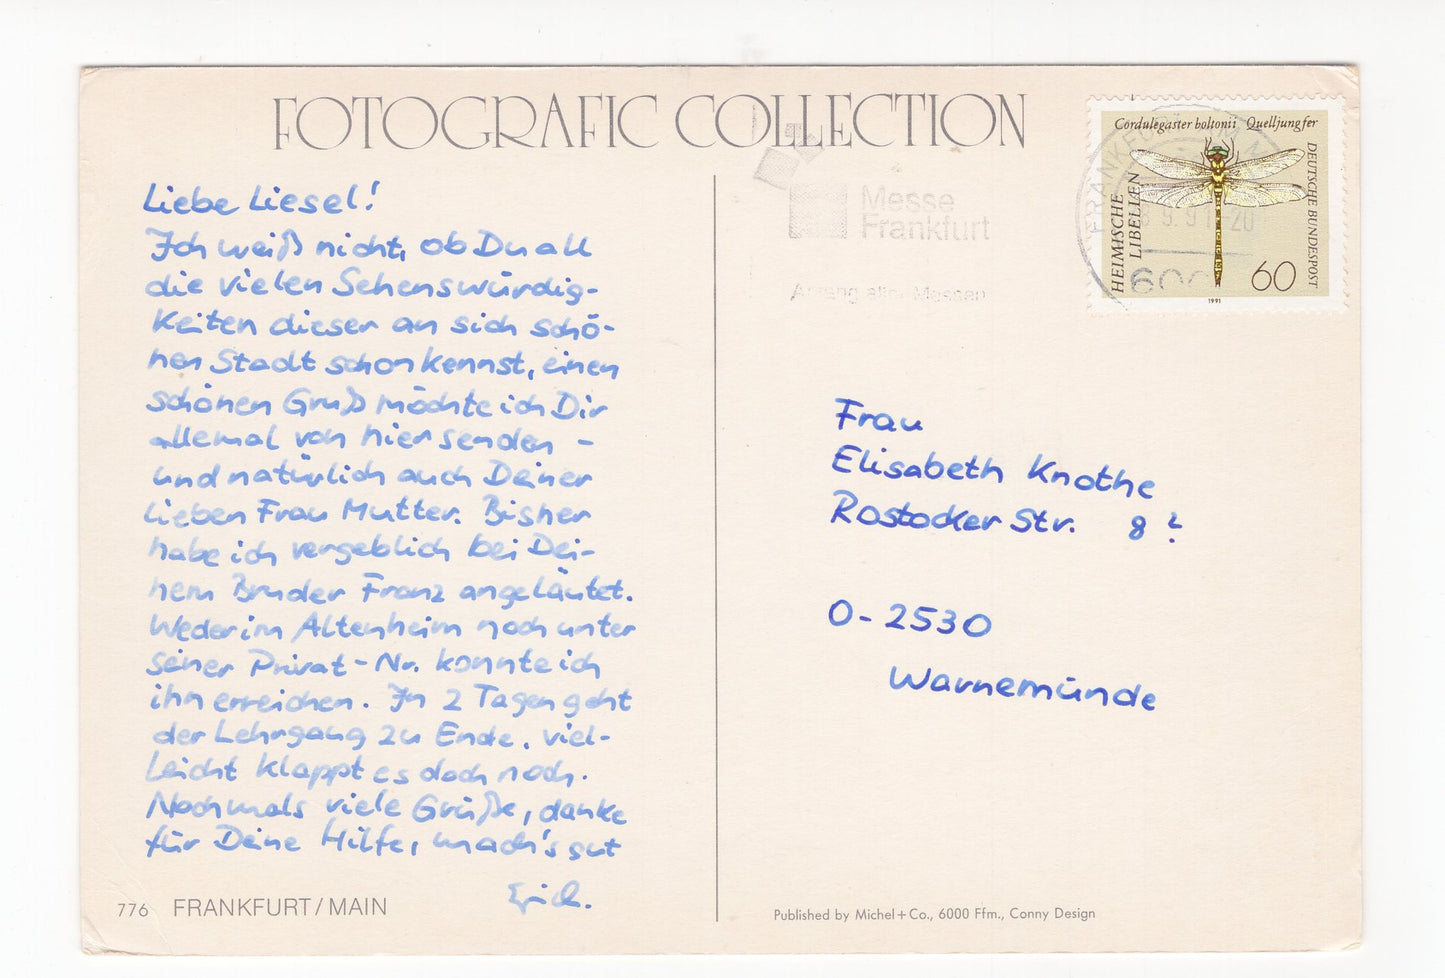 FOTOGRAFIC COLLECTION
Liebe Liesel!
Ich weiß nicht, ob Du all
die vielen Sehenswürdig-
keiten dieser an sich schö-
nen Stadt schon kennst, einen
schönen Gruß möchte ich Dir
allemal von hier senden –
und natürlich auch Deiner
lieben Frau Mutter. Bisher
habe ich vergeblich bei Dei-
nem Bruder Franz angeläutet.
Weder im Altenheim noch unter
seiner Privat-Nr. konnte ich
ihn erreichen. In 2 Tagen geht
der Lehrgang zu Ende, viel-
leicht klappt es doch noch.
Nochmals viele Grüße, danke
für Deine Hilfe, mach's gut
Erich.
776 FRANKFURT/MAIN
Messe
Frankfurt
aller Messen
Cordulegaster boltonii Quelljungfer
HEIMISCHE
LIBELLEN
DEUTSCHE BUNDESPOST
60
1991
FRANKFURT
9.91 20
600
Frau
Elisabeth Knothe
Rostocker Str. 8 ?
O-2530
Warnemünde
Published by Michel+Co., 6000 Ffm., Conny Design